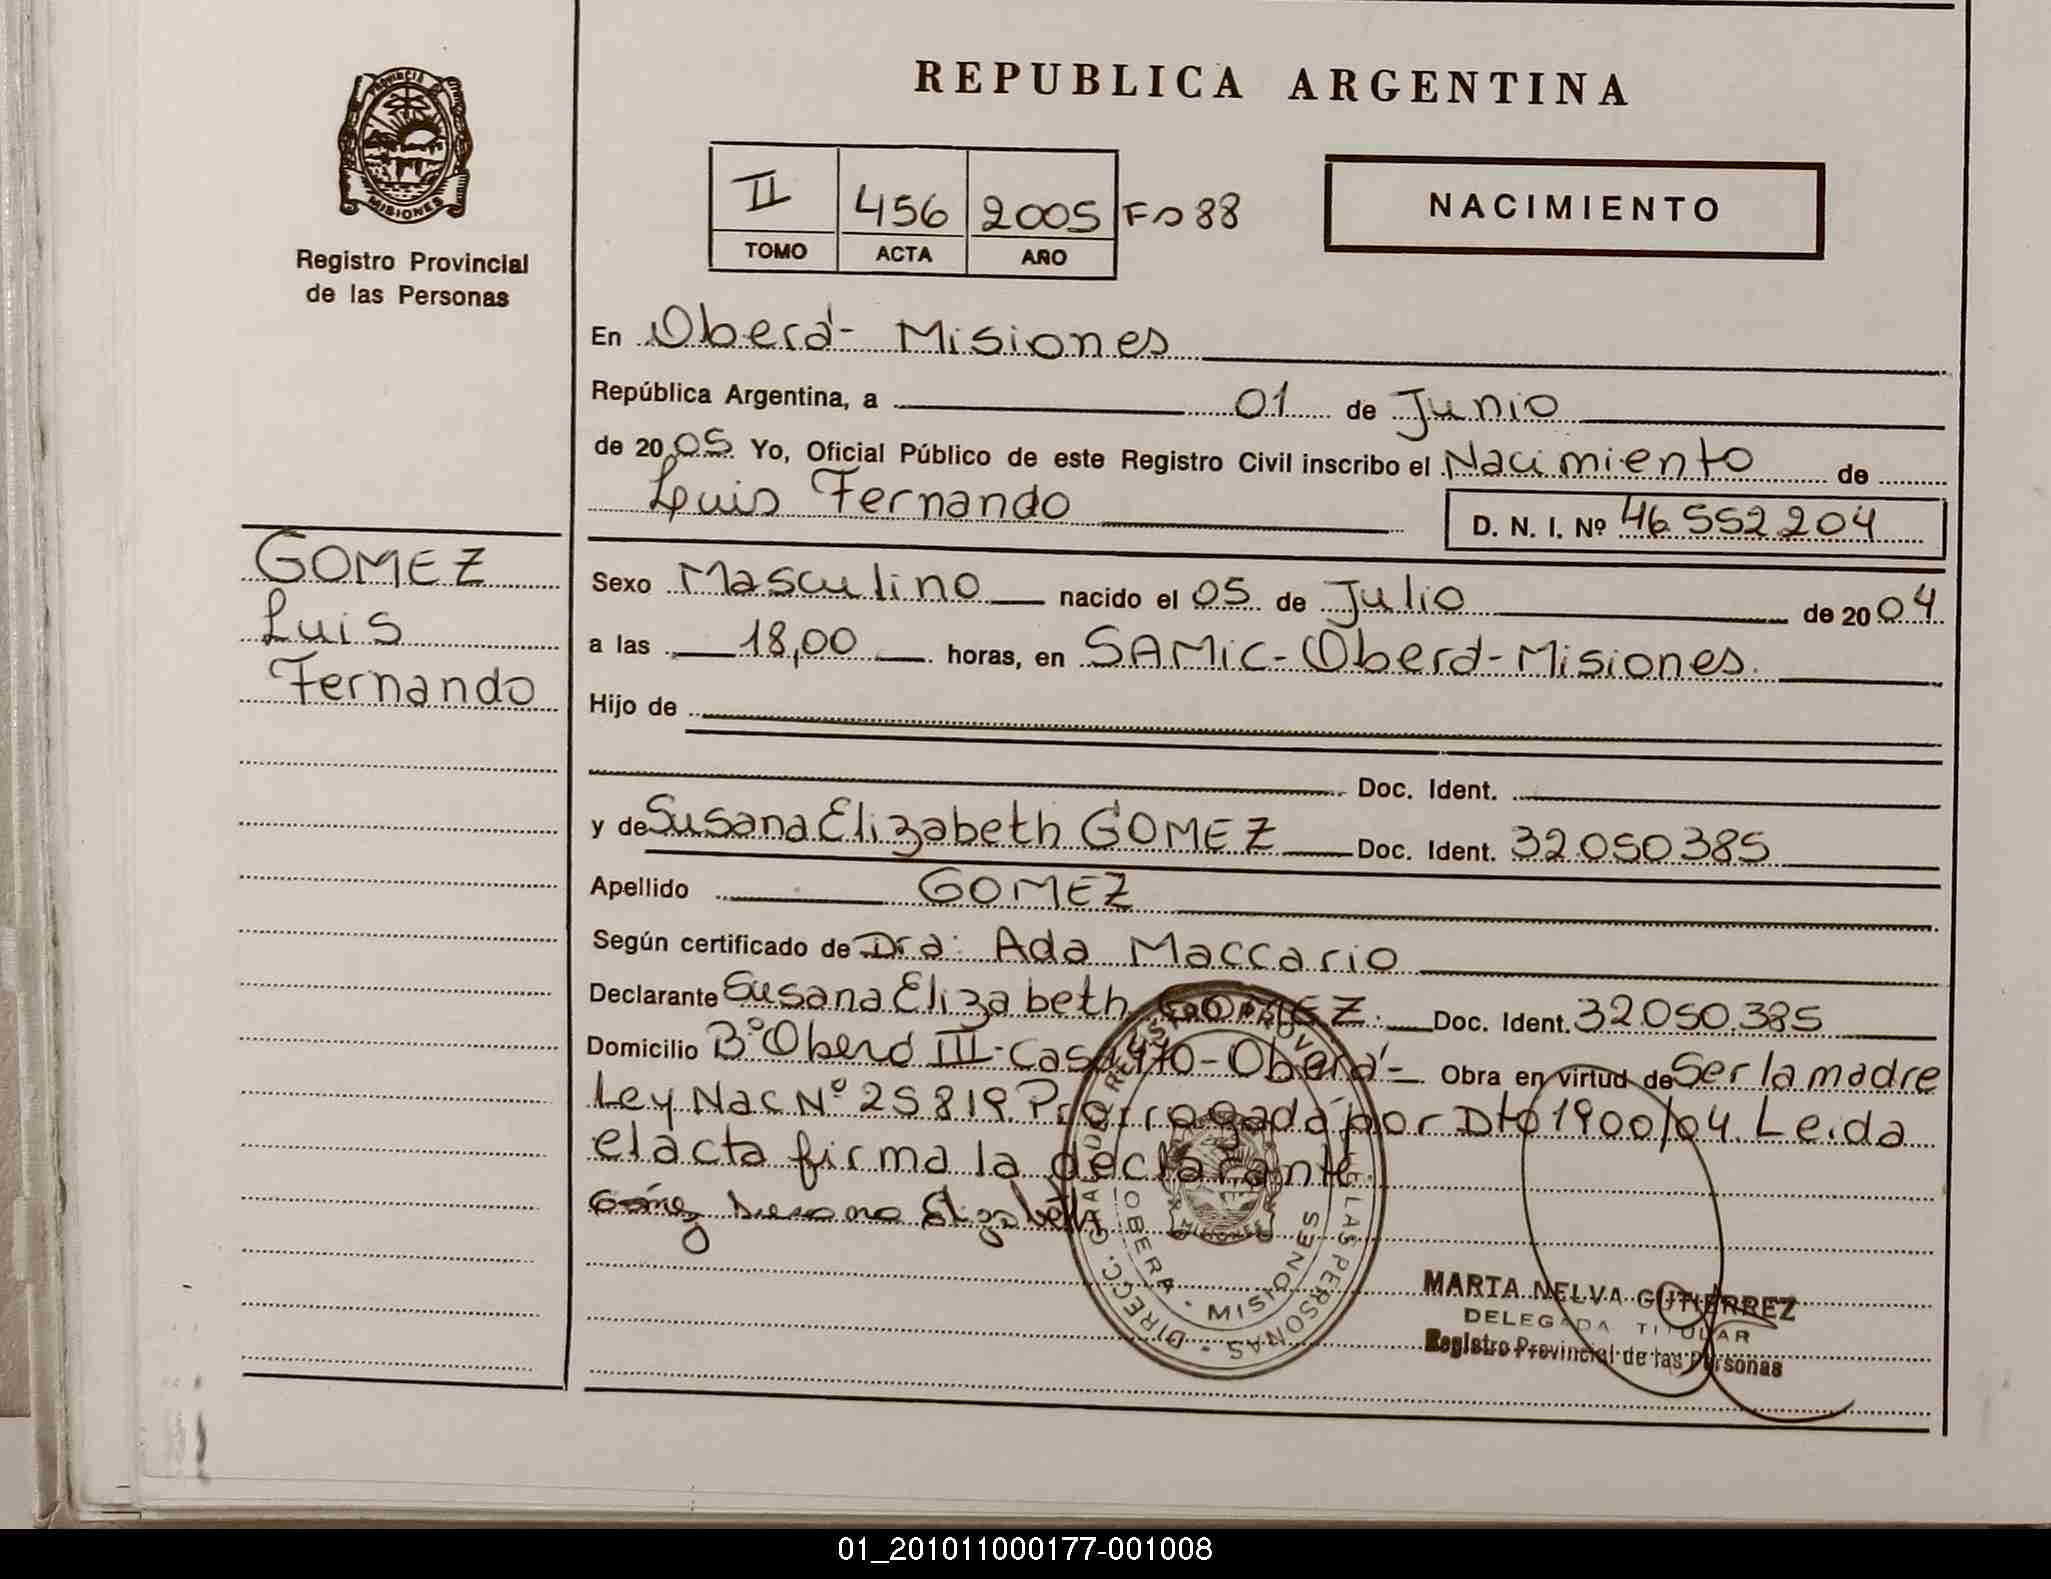 REPUBLICA ARGENTINA
PROVINCIA DE MISIONES
Registro Provincial
de las Personas
II 456 2005 Fo 88
TOMO ACTA AÑO
NACIMIENTO
En Oberá - Misiones
República Argentina, a 01 de Junio
de 2005 Yo, Oficial Público de este Registro Civil inscribo el Nacimiento de
Luis Fernando
D. N. I. Nº 46.552.204
GOMEZ
Luis
Fernando
Sexo Masculino nacido el 05 de Julio de 2004
a las 18,00 horas, en SAMIC - Oberá - Misiones.
Hijo de
Doc. Ident.
y de Susana Elizabeth GOMEZ Doc. Ident. 32.050.385
Apellido GOMEZ
Según certificado de Dra: Ada Maccario
Declarante Susana Elizabeth GOMEZ. Doc. Ident. 32.050.385
Domicilio Bº Oberá III - Casa 470 - Oberá - Obra en virtud de Ser la madre
Ley Nac Nº 25819. Prorrogada por Dto 1900/04. Leida
el acta firma la declarante.
Gómez Susana Elizabeth
DIRECC. GRAL. DE REGISTRO PROV. DE LAS PERSONAS
OBERA - MISIONES
MARTA NELVA GUTIERREZ
DELEGADA TITULAR
Registro Provincial de las Personas
01_201011000177-001008